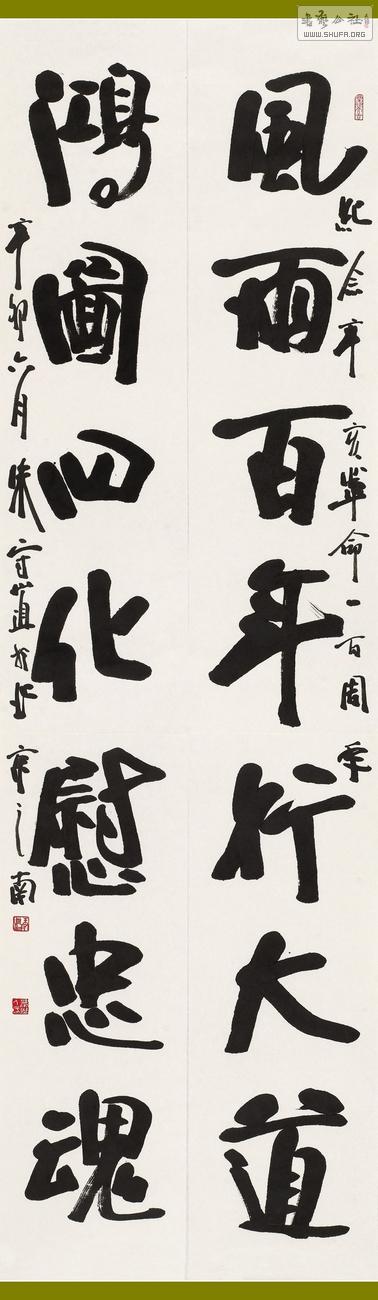 風雨百年行大道
紀念辛亥革命一百周年
鴻圖四化慰忠魂
辛卯六月朱守道於北京之南
WWW.SHUFA.ORG